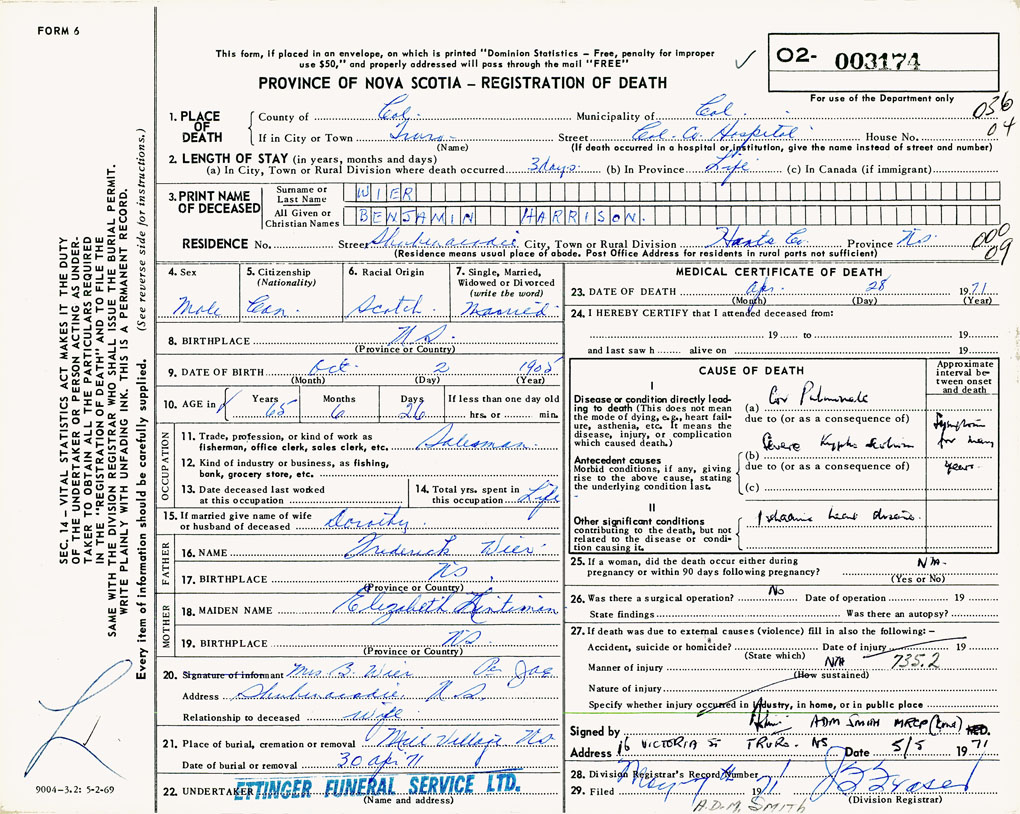 FORM 6
This form, if placed in an envelope, on which is printed "Dominion Statistics – Free, penalty for improper
use $50," and properly addressed will pass through the mail "FREE"
✓
O2- 003174
PROVINCE OF NOVA SCOTIA – REGISTRATION OF DEATH
For use of the Department only
036
04
1. PLACE OF DEATH
County of Col. Municipality of Col.
If in City or Town Truro Street Col. Co. Hospital House No.
(Name) (If death occurred in a hospital or institution, give the name instead of street and number)
2. LENGTH OF STAY (in years, months and days)
(a) In City, Town or Rural Division where death occurred 3 days (b) In Province Life (c) In Canada (if immigrant)
3. PRINT NAME OF DECEASED
Surname or Last Name WIER
All Given or Christian Names BENJAMIN HARRISON.
RESIDENCE No. Street Shubenacadie City, Town or Rural Division Hants Co. Province NS.
(Residence means usual place of abode. Post Office Address for residents in rural parts not sufficient)
000
09
4. Sex
Male
5. Citizenship
(Nationality)
Can.
6. Racial Origin
Scotch
7. Single, Married,
Widowed or Divorced
(write the word)
Married
8. BIRTHPLACE N.S.
(Province or Country)
9. DATE OF BIRTH Oct. 2 1905
(Month) (Day) (Year)
10. AGE in Years Months Days If less than one day old
65 6 26 hrs. or min.
OCCUPATION
11. Trade, profession, or kind of work as
fisherman, office clerk, sales clerk, etc. Salesman.
12. Kind of industry or business, as fishing,
bank, grocery store, etc.
13. Date deceased last worked
at this occupation
14. Total yrs. spent in
this occupation Life
15. If married give name of wife
or husband of deceased Dorothy.
FATHER
16. NAME Frederick Wier
17. BIRTHPLACE NS
(Province or Country)
MOTHER
18. MAIDEN NAME Elizabeth
19. BIRTHPLACE NS.
(Province or Country)
20. Signature of informant Mrs B. Wier Per
Address Shubenacadie, N.S.
Relationship to deceased wife
21. Place of burial, cremation or removal Mill Village NS
Date of burial or removal 30 apr 71
22. UNDERTAKER ETTINGER FUNERAL SERVICE LTD.
(Name and address)
MEDICAL CERTIFICATE OF DEATH
23. DATE OF DEATH Apr. 28 1971
(Month) (Day) (Year)
24. I HEREBY CERTIFY that I attended deceased from:
19 to 19
and last saw h alive on 19
CAUSE OF DEATH
Approximate
interval be-
tween onset
and death
I
Disease or condition directly lead-
ing to death (This does not mean
the mode of dying, e.g., heart fail-
ure, asthenia, etc. It means the
disease, injury, or complication
which caused death.)
(a) Cor Pulmonale
due to (or as a consequence of)
Antecedent causes
Morbid conditions, if any, giving
rise to the above cause, stating
the underlying condition last.
(b) Severe Kypho Scoliosis
due to (or as a consequence of)
(c)
for many
years.
II
Other significant conditions
contributing to the death, but not
related to the disease or condi-
tion causing it.
Ischaemic heart disease.
25. If a woman, did the death occur either during
pregnancy or within 90 days following pregnancy? N/A.
(Yes or No)
26. Was there a surgical operation? No Date of operation 19
State findings Was there an autopsy?
27. If death was due to external causes (violence) fill in also the following: –
Accident, suicide or homicide? Date of injury 19
(State which)
Manner of injury N/A 735.2
(How sustained)
Nature of injury
Specify whether injury occurred in Industry, in home, or in public place
Signed by ADM SMITH MRCP
Address 16 VICTORIA ST TRURO. NS Date 5/5 1971
28. Division Registrar's Record Number
29. Filed May 1971
(Division Registrar)
A.D.M. SMITH
SEC. 14 – VITAL STATISTICS ACT MAKES IT THE DUTY
OF THE UNDERTAKER OR PERSON ACTING AS UNDER-
TAKER TO OBTAIN ALL THE PARTICULARS REQUIRED
IN THE "REGISTRATION OF DEATH" AND TO FILE THE
SAME WITH THE DIVISION REGISTRAR WHO SHALL ISSUE THE BURIAL PERMIT.
WRITE PLAINLY WITH UNFADING INK. THIS IS A PERMANENT RECORD.
Every item of information should be carefully supplied. (See reverse side for instructions.)
9004-3.2: 5-2-69